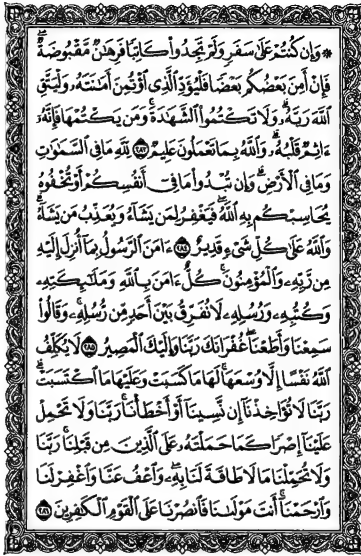 ۞ وَإِن كُنتُمْ عَلَىٰ سَفَرٍ وَلَمْ تَجِدُوا۟ كَاتِبًا فَرِهَٰنٌ مَّقْبُوضَةٌ ۖ
فَإِنْ أَمِنَ بَعْضُكُم بَعْضًا فَلْيُؤَدِّ ٱلَّذِى ٱؤْتُمِنَ أَمَٰنَتَهُۥ وَلْيَتَّقِ
ٱللَّهَ رَبَّهُۥ ۗ وَلَا تَكْتُمُوا۟ ٱلشَّهَٰدَةَ ۚ وَمَن يَكْتُمْهَا فَإِنَّهُۥٓ
ءَاثِمٌ قَلْبُهُۥ ۗ وَٱللَّهُ بِمَا تَعْمَلُونَ عَلِيمٌ ٢٨٣ لِّلَّهِ مَا فِى ٱلسَّمَٰوَٰتِ
وَمَا فِى ٱلْأَرْضِ ۗ وَإِن تُبْدُوا۟ مَا فِىٓ أَنفُسِكُمْ أَوْ تُخْفُوهُ
يُحَاسِبْكُم بِهِ ٱللَّهُ ۖ فَيَغْفِرُ لِمَن يَشَآءُ وَيُعَذِّبُ مَن يَشَآءُ ۗ
وَٱللَّهُ عَلَىٰ كُلِّ شَىْءٍ قَدِيرٌ ٢٨٤ ءَامَنَ ٱلرَّسُولُ بِمَآ أُنزِلَ إِلَيْهِ
مِن رَّبِّهِۦ وَٱلْمُؤْمِنُونَ ۚ كُلٌّ ءَامَنَ بِٱللَّهِ وَمَلَٰٓئِكَتِهِۦ
وَكُتُبِهِۦ وَرُسُلِهِۦ لَا نُفَرِّقُ بَيْنَ أَحَدٍ مِّن رُّسُلِهِۦ ۚ وَقَالُوا۟
سَمِعْنَا وَأَطَعْنَا ۖ غُفْرَانَكَ رَبَّنَا وَإِلَيْكَ ٱلْمَصِيرُ ٢٨٥ لَا يُكَلِّفُ
ٱللَّهُ نَفْسًا إِلَّا وُسْعَهَا ۚ لَهَا مَا كَسَبَتْ وَعَلَيْهَا مَا ٱكْتَسَبَتْ ۗ
رَبَّنَا لَا تُؤَاخِذْنَآ إِن نَّسِينَآ أَوْ أَخْطَأْنَا ۚ رَبَّنَا وَلَا تَحْمِلْ
عَلَيْنَآ إِصْرًا كَمَا حَمَلْتَهُۥ عَلَى ٱلَّذِينَ مِن قَبْلِنَا ۚ رَبَّنَا
وَلَا تُحَمِّلْنَا مَا لَا طَاقَةَ لَنَا بِهِۦ ۖ وَٱعْفُ عَنَّا وَٱغْفِرْ لَنَا
وَٱرْحَمْنَآ ۚ أَنتَ مَوْلَىٰنَا فَٱنصُرْنَا عَلَى ٱلْقَوْمِ ٱلْكَٰفِرِينَ ٢٨٦